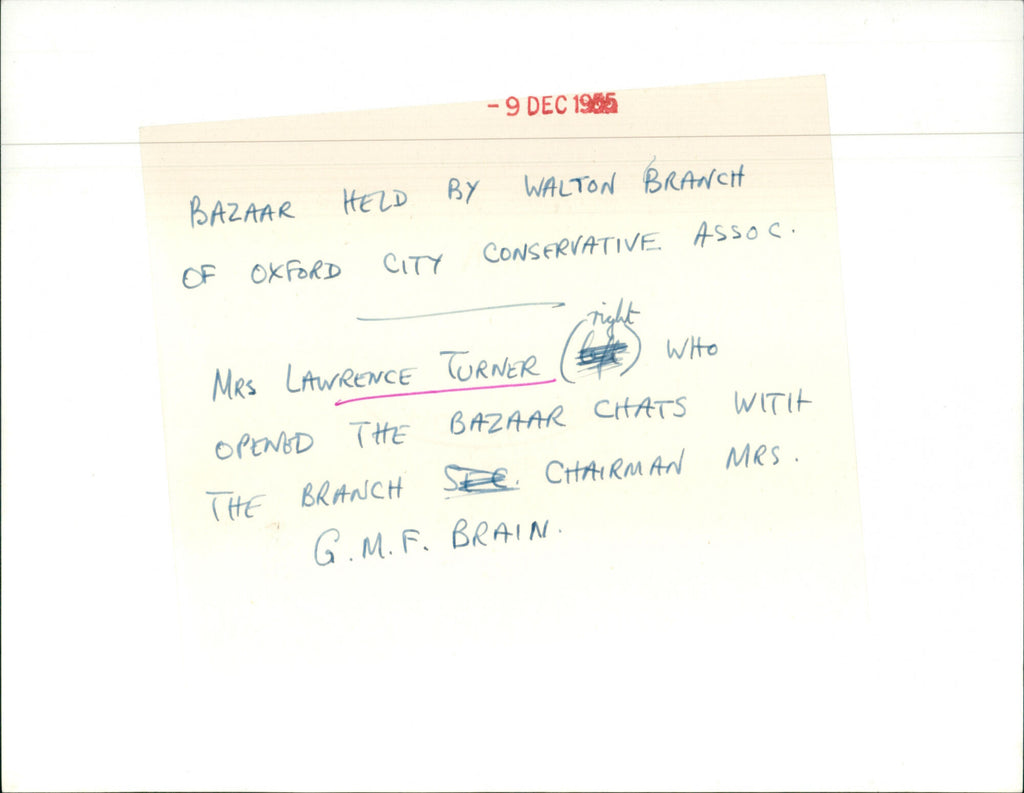 - 9 DEC 1955
BAZAAR HELD BY WALTON BRANCH
OF OXFORD CITY CONSERVATIVE ASSOC.
right
MRS LAWRENCE TURNER (left) WHO
OPENED THE BAZAAR CHATS WITH
THE BRANCH SEC. CHAIRMAN MRS.
G.M.F. BRAIN.